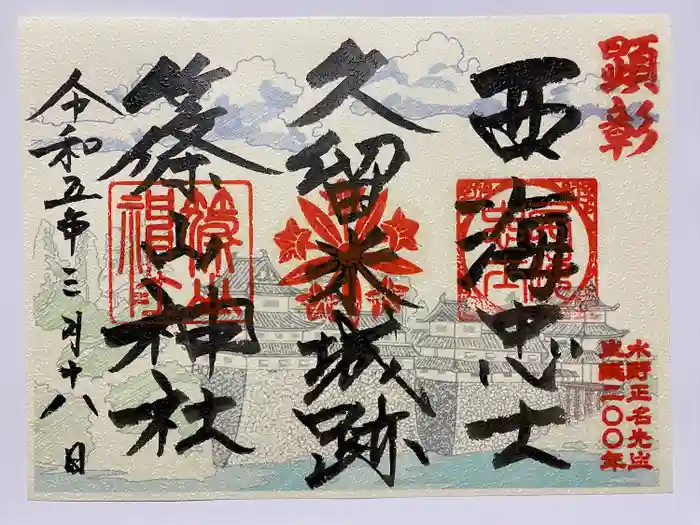 顕彰
水野正名先生
生誕二〇〇年
西海忠士
久留米城跡
篠山神社
令和五年三月十八日